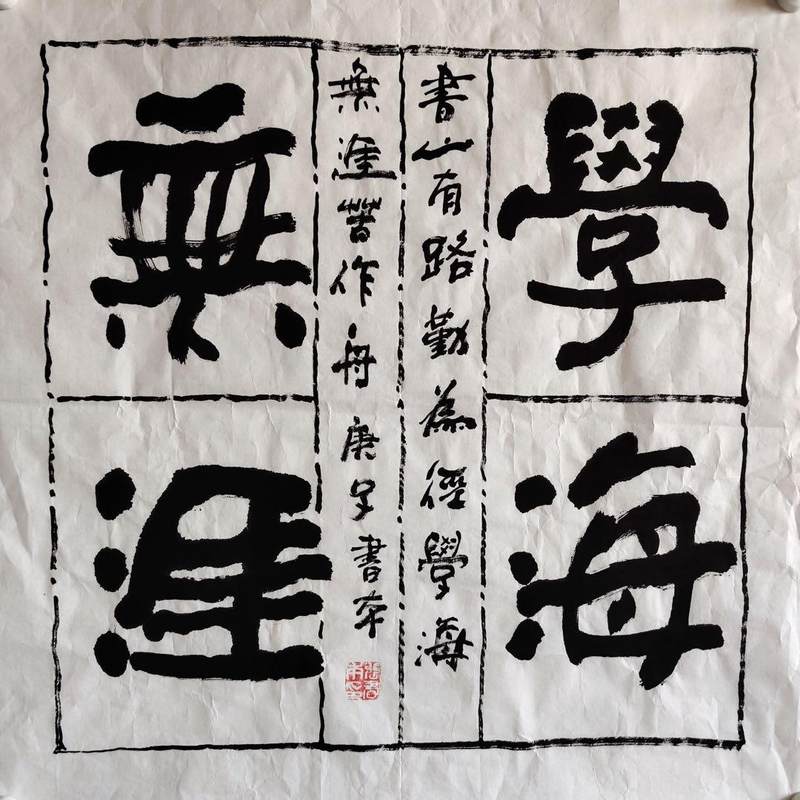 學海
書山有路勤為徑學海
無涯苦作舟庚子書本
無涯